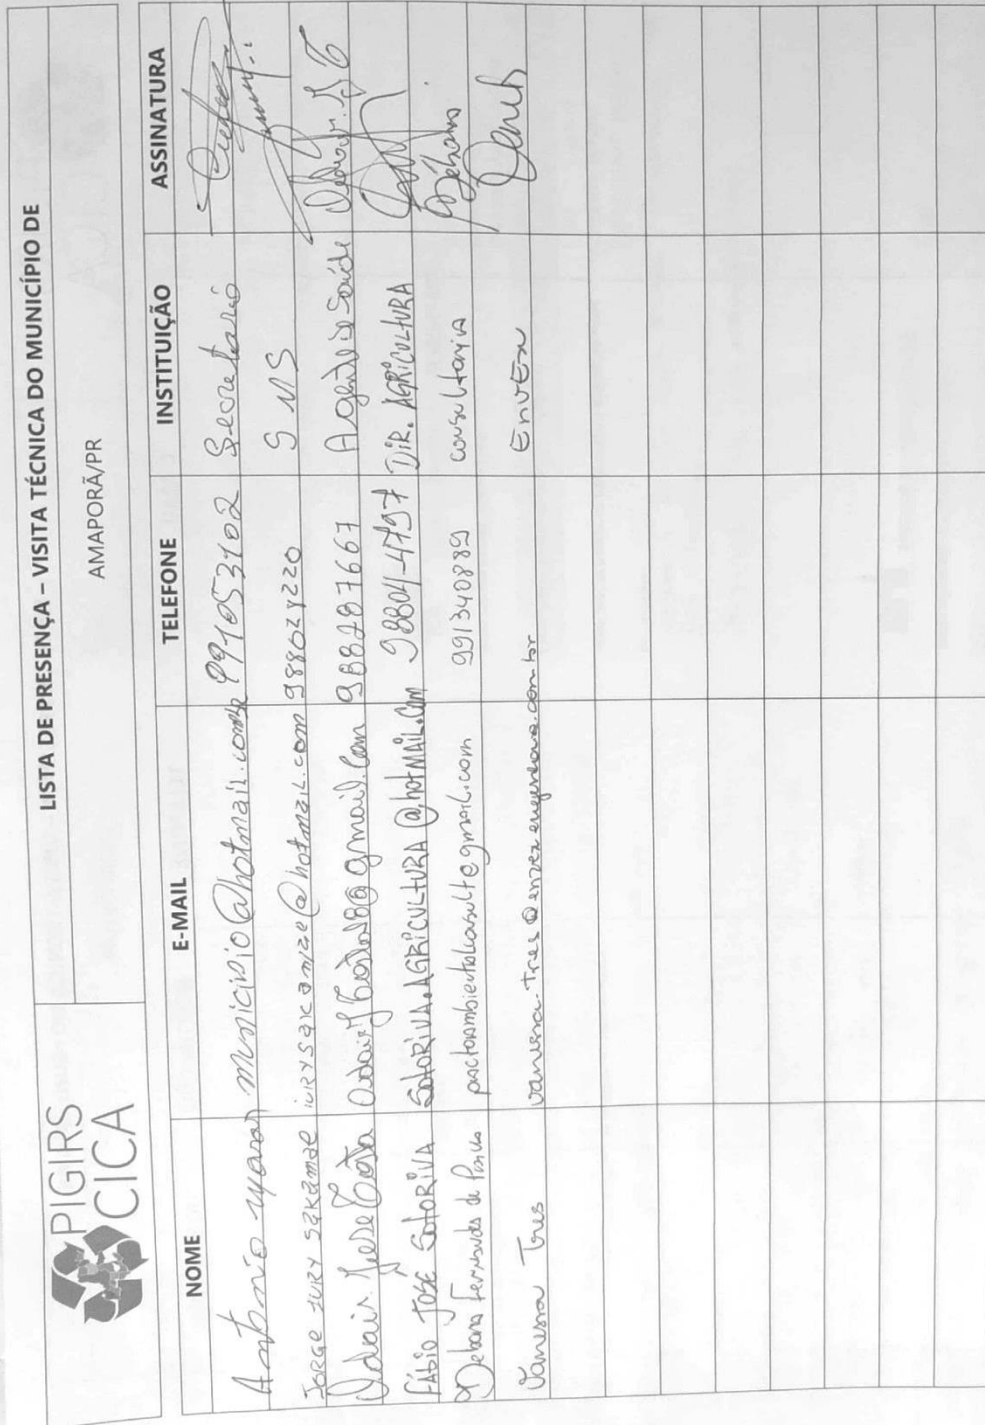 PIGIRS
CICA
LISTA DE PRESENÇA – VISITA TÉCNICA DO MUNICÍPIO DE
AMAPORÃ/PR
NOME E-MAIL TELEFONE INSTITUIÇÃO ASSINATURA
Antonio municipio@hotmail.com 991053402 Secretario
JORGE IURY SAKAMAE iurysakamae@hotmail.com SMS
Odair José Costa 988287667 Agente de Saúde
FÁBIO JOSÉ SOTORIVA SOTORIVA.AGRICULTURA@HOTMAIL.COM 98804-4797 DIR. AGRICULTURA
Debora Fernandes de Paula 991340889 consultoria Débora
Vanessa Tres vanessa.tres@envexengenharia.com.br EnvEx